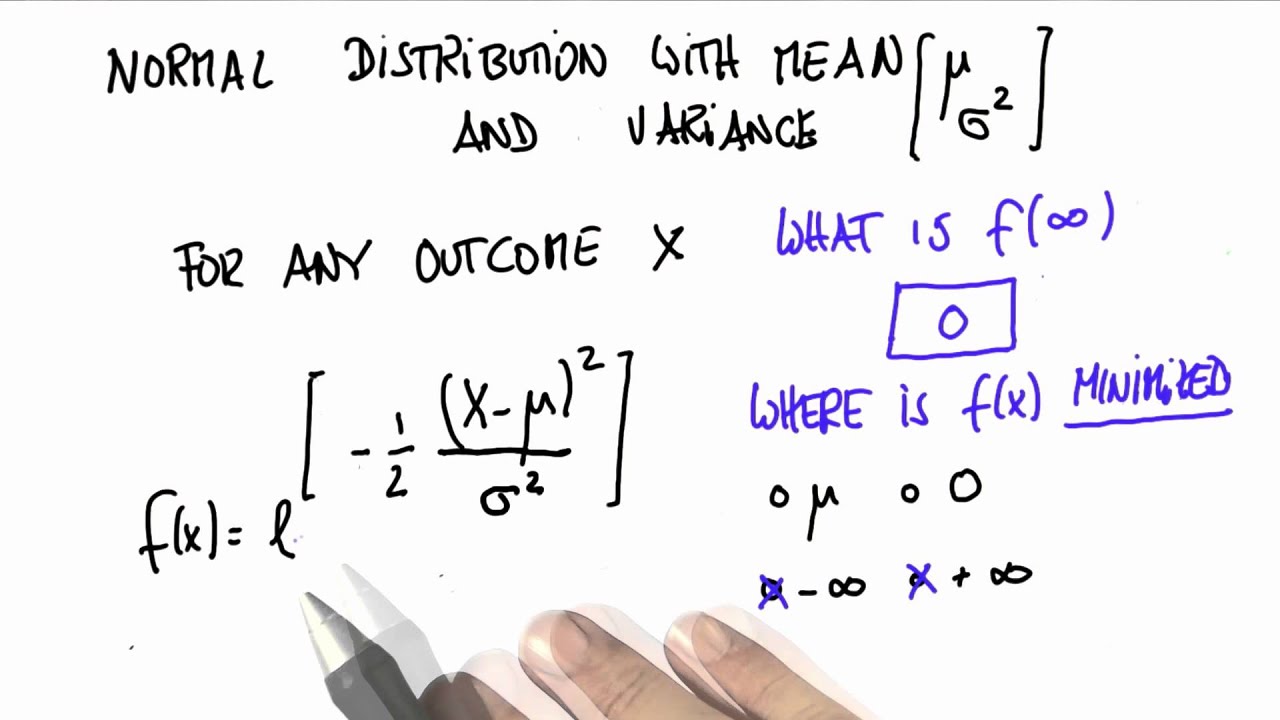 NORMAL DISTRIBUTION WITH MEAN [μ
AND VARIANCE σ²]
FOR ANY OUTCOME X
f(x) = e^[-1/2 (X-μ)²/σ²]
WHAT IS f(∞)
0
WHERE IS f(x) MINIMIZED
o μ o 0
x -∞ x +∞